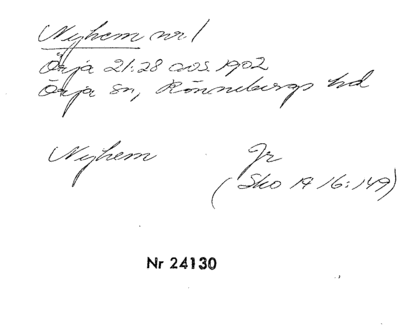 Nyhem nr 1
Örja 21:28 avs. 1902
Örja sn, Rönnebergs hd
Nyhem Jr
(Sko 19 16:149)
Nr 24130